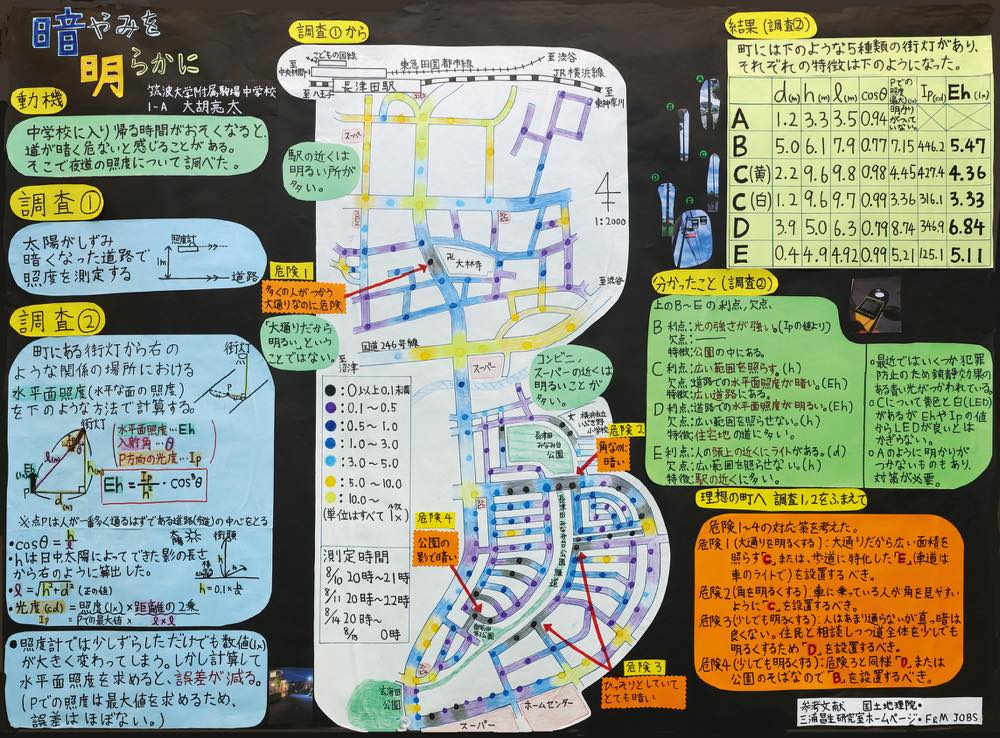 暗やみを
明らかに
筑波大学附属駒場中学校
1-A 大胡亮太
動機
中学校に入り帰る時間がおそくなると、
道が暗く危ないと感じることがある。
そこで夜道の照度について調べた。
調査①
太陽がしずみ
暗くなった道路で
照度を測定する
照度計
1m
道路
調査②
町にある街灯から右の
ような関係の場所における
水平面照度(水平な面の照度)
を下のような方法で計算する。
街灯
P
街灯
θ
l(m)
h(m)
Eh
P
d(m)
水平面照度…Eh
入射角…θ
P方向の光度…Ip
Eh=Ip/h²・cos³θ
※点Pは人が一番多く通るはずである道路(歩道)の中心をとる
・cosθ=h/l
・hは日中太陽によってできた影の長さ
から右のように算出した。
街頭
・l=√h²+d²(正の値)
光度(cd)=照度(lx)×距離の2乗
Ip=Pでの最大値×l×l
・照度計では少しずらしただけでも数値(lx)
が大きく変わってしまう。しかし計算して
水平面照度を求めると、誤差が減る。
(Pでの照度は最大値を求めるため、
誤差はほぼない。)
調査①から
こどもの国線
至中央林間
東急田園都市線
至渋谷
長津田駅
JR横浜線
至八王子
至東神奈川
スーパー
駅の近くは
明るい所が
多い。
4
1:2000
卍
大林寺
危険1
多くの人がつかう
大通りなのに危険
至渋谷
「大通りだから
明るい」という
ことではない。
国道246号線
至沼津
スーパー
コンビニ、
スーパーの近くは
明るいことが
多い。
●:0以上0.1未満
●:0.1〜0.5
●:0.5〜1.0
●:1.0〜3.0
●:3.0〜5.0
●:5.0〜10.0
●:10.0〜
(単位はすべてlx)
ルクス
測定時間
8/10 20時〜21時
8/11 20時〜22時
8/14 20時〜
8/15 0時
横浜市立
いぶき野
小学校
長津田
みなみ台
公園
危険2
角なのに
暗い
長津田みなみ台公園
危険4
公園の
影で暗い
危険3
ひっそりとしていて
とても暗い
玄海田
公園
スーパー
ホームセンター
結果(調査②)
町には下のような5種類の街灯があり、
それぞれの特徴は下のようになった。
d(m) h(m) l(m) cosθ Pでの照度(最大)(lx) Ip(cd) Eh(lx)
A 1.2 3.3 3.5 0.94 明かりがついていない。
B 5.0 6.1 7.9 0.77 7.15 446.2 5.47
C(黄) 2.2 9.6 9.8 0.98 4.45 427.4 4.36
C(白) 1.2 9.6 9.7 0.99 3.36 316.1 3.33
D 3.9 5.0 6.3 0.79 8.74 346.9 6.84
E 0.4 4.9 4.92 0.99 5.21 125.1 5.11
A
B
C
D
E
分かったこと(調査②)
上のB〜Eの利点、欠点、
B 利点:光の強さが強い。(Ipの値より)
欠点:――
特徴:公園の中にある。
C 利点:広い範囲を照らす。(h)
欠点:道路での水平面照度が暗い。(Eh)
特徴:広い道路にある。
D 利点:道路での水平面照度が明るい。(Eh)
欠点:広い範囲を照らせない。(h)
特徴:住宅地の道に多い。
E 利点:人の頭上の近くにライトがある。(d)
欠点:広い範囲を照らせない。(h)
特徴:駅の近くに多い。
○最近ではいくつか犯罪
防止のため鎮静効果の
ある青い光がつかわれている。
○Cについて黄と白(LED)
があるがEhやIpの値
からLEDが良いとは
かぎらない。
○Aのように明かりが
つかないものもあり、
対策が必要。
理想の町へ 調査1,2をふまえて
危険1〜4の対応策を考えた。
危険1(大通りを明るくする):大通りだから広い面積を
照らす"C"、または、歩道に特化した"E"(車道は
車のライトで)を設置するべき。
危険2(角を明るくする):車に乗っている人が角を見やすい
ように"C"を設置するべき。
危険3(少しでも明るくする):人はあまり通らないが真っ暗は
良くない。住民と相談しつつ道全体を少しでも
明るくするため"D"を設置するべき。
危険4(少しでも明るくする):危険3と同様"D"または
公園のそばなので"B"を設置するべき。
参考文献 国土地理院・
三浦昌生研究室ホームページ・F&M JOBS